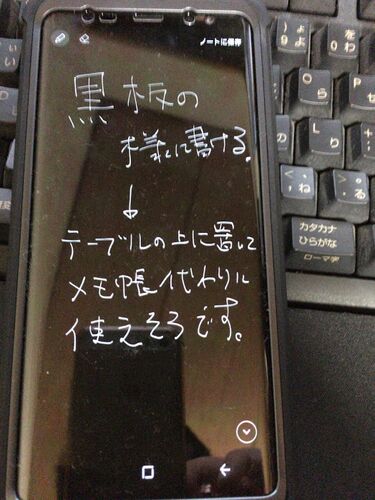 ノートに保存
黒板の
様に書ける。
↓
テーブルの上に置いて
メモ帳代わりに
使えそうです。
ょ
9よ
を
0わ
O
ら
P
せ
L
り
+
;れ
<
、
,ね
>
。
.る
カタカナ
ひらがな
ローマ字